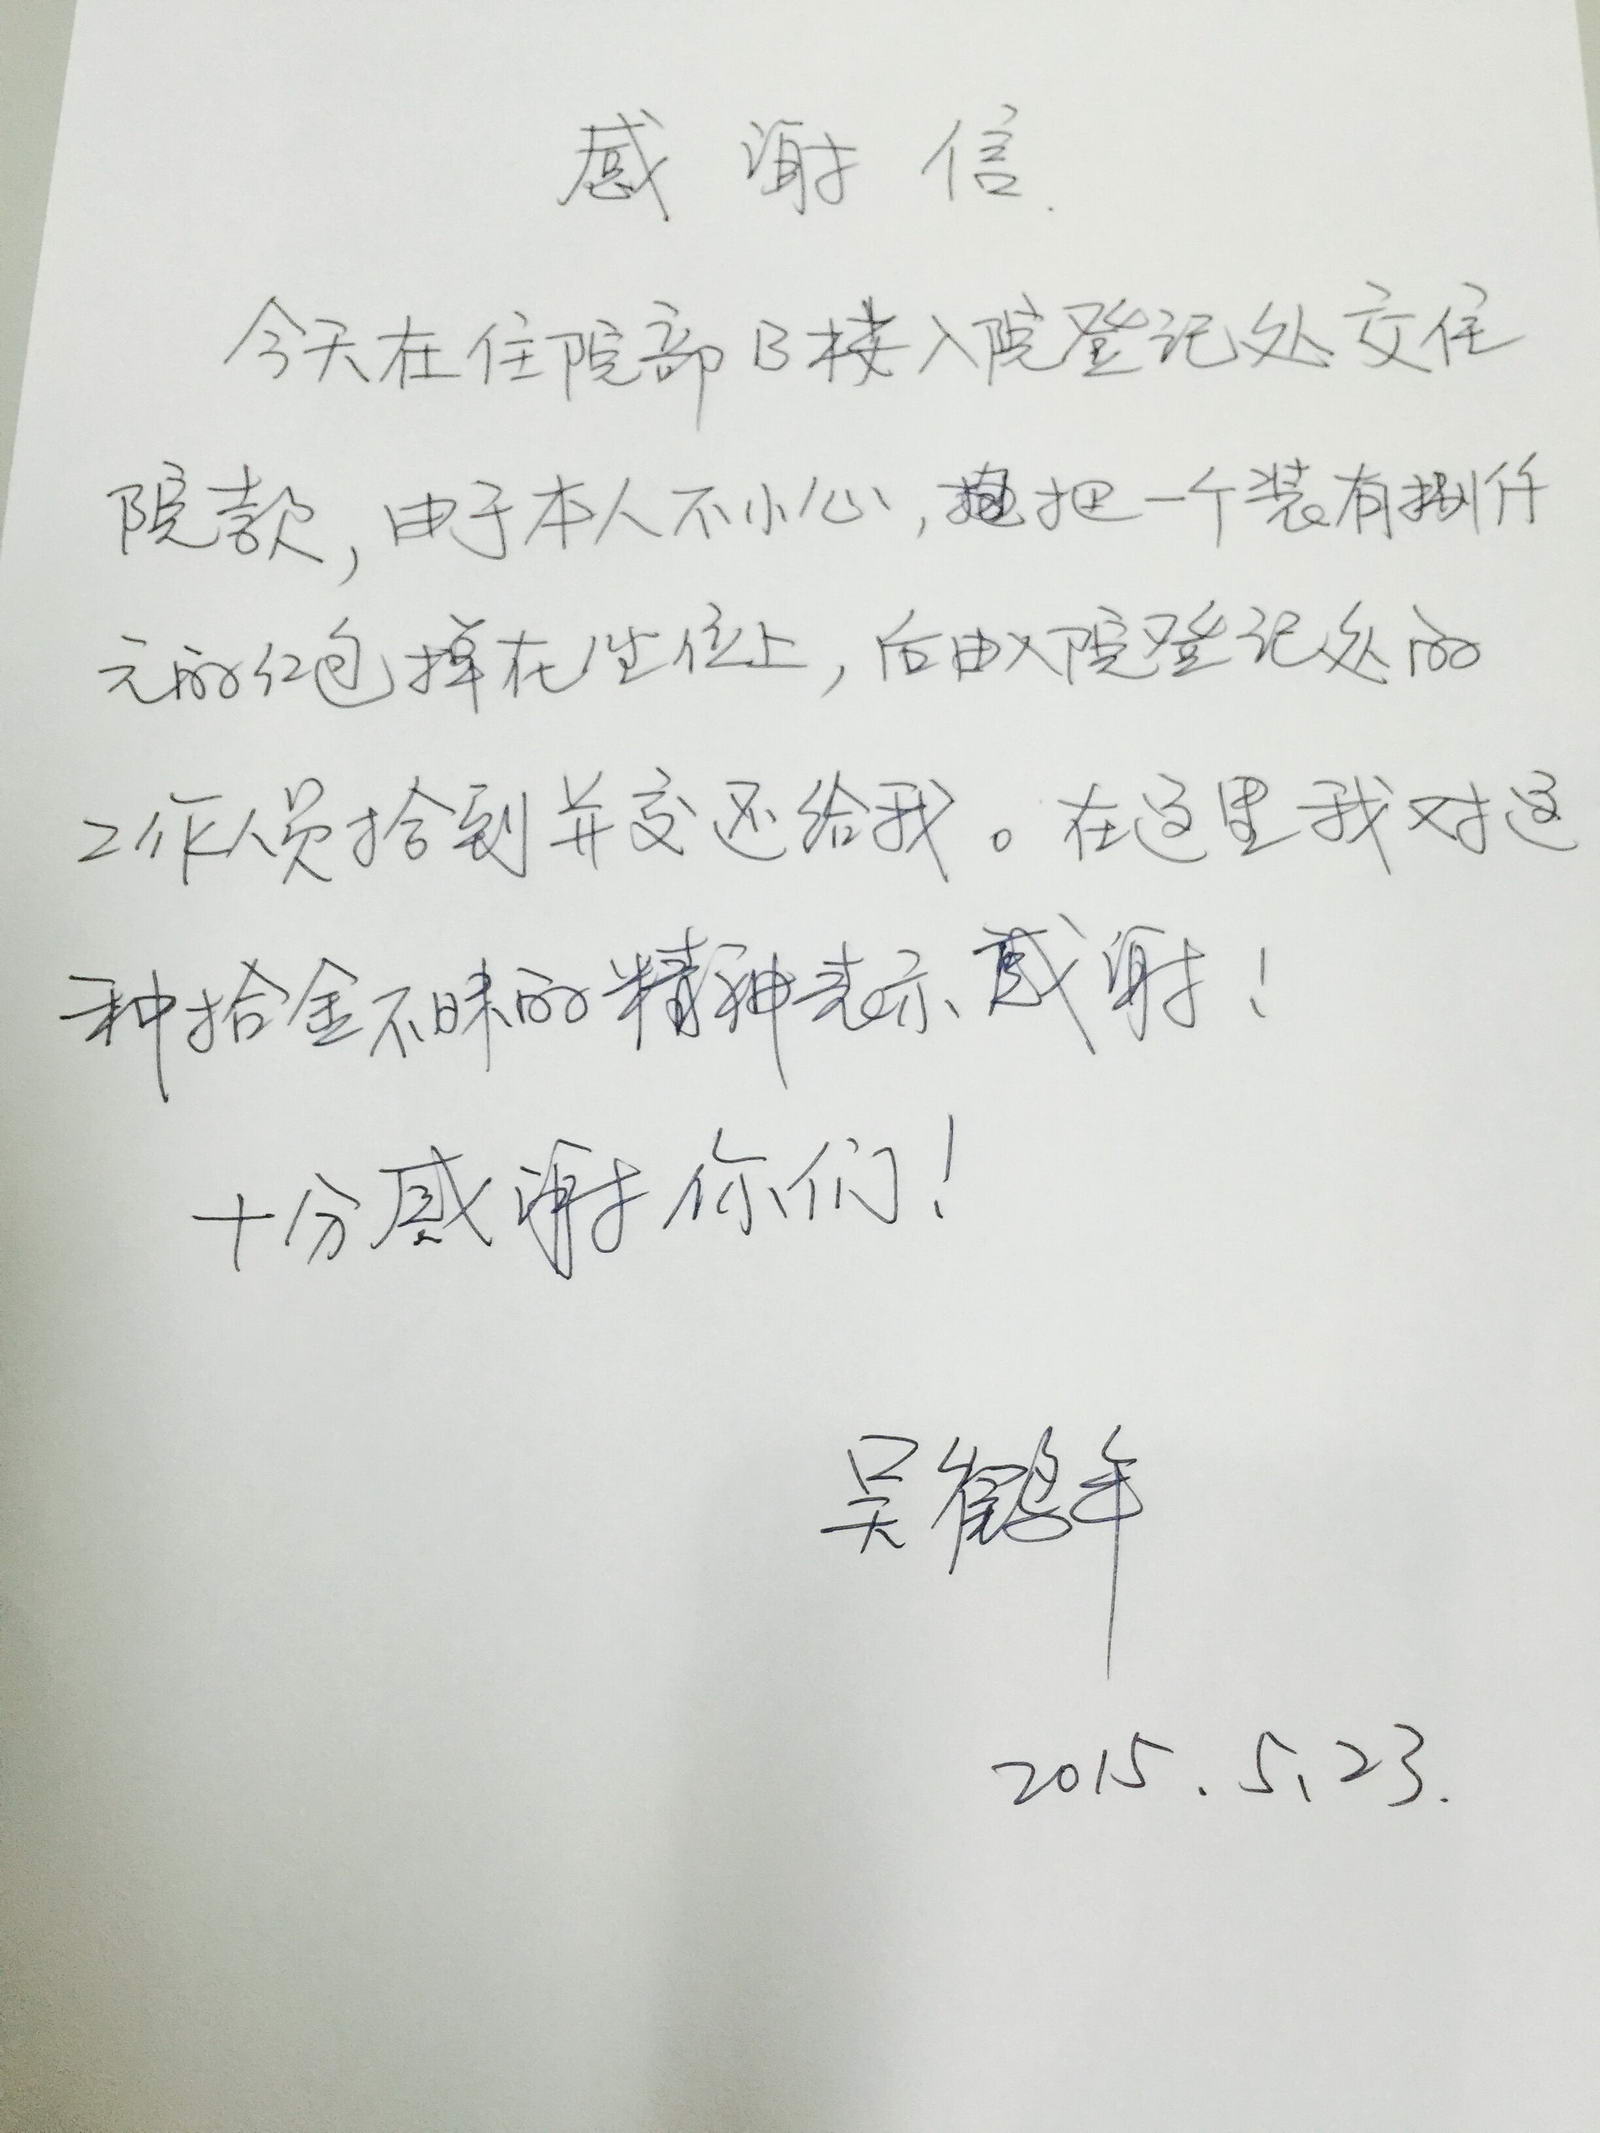 感谢信.
今天在住院部B楼入院登记处交住
院款,由于本人不小心,把一个装有捌仟
元的红包掉在坐位上,后由入院登记处的
工作人员拾到并交还给我。在这里我对这
种拾金不昧的精神表示感谢!
十分感谢你们!
吴鹤年
2015.5.23.